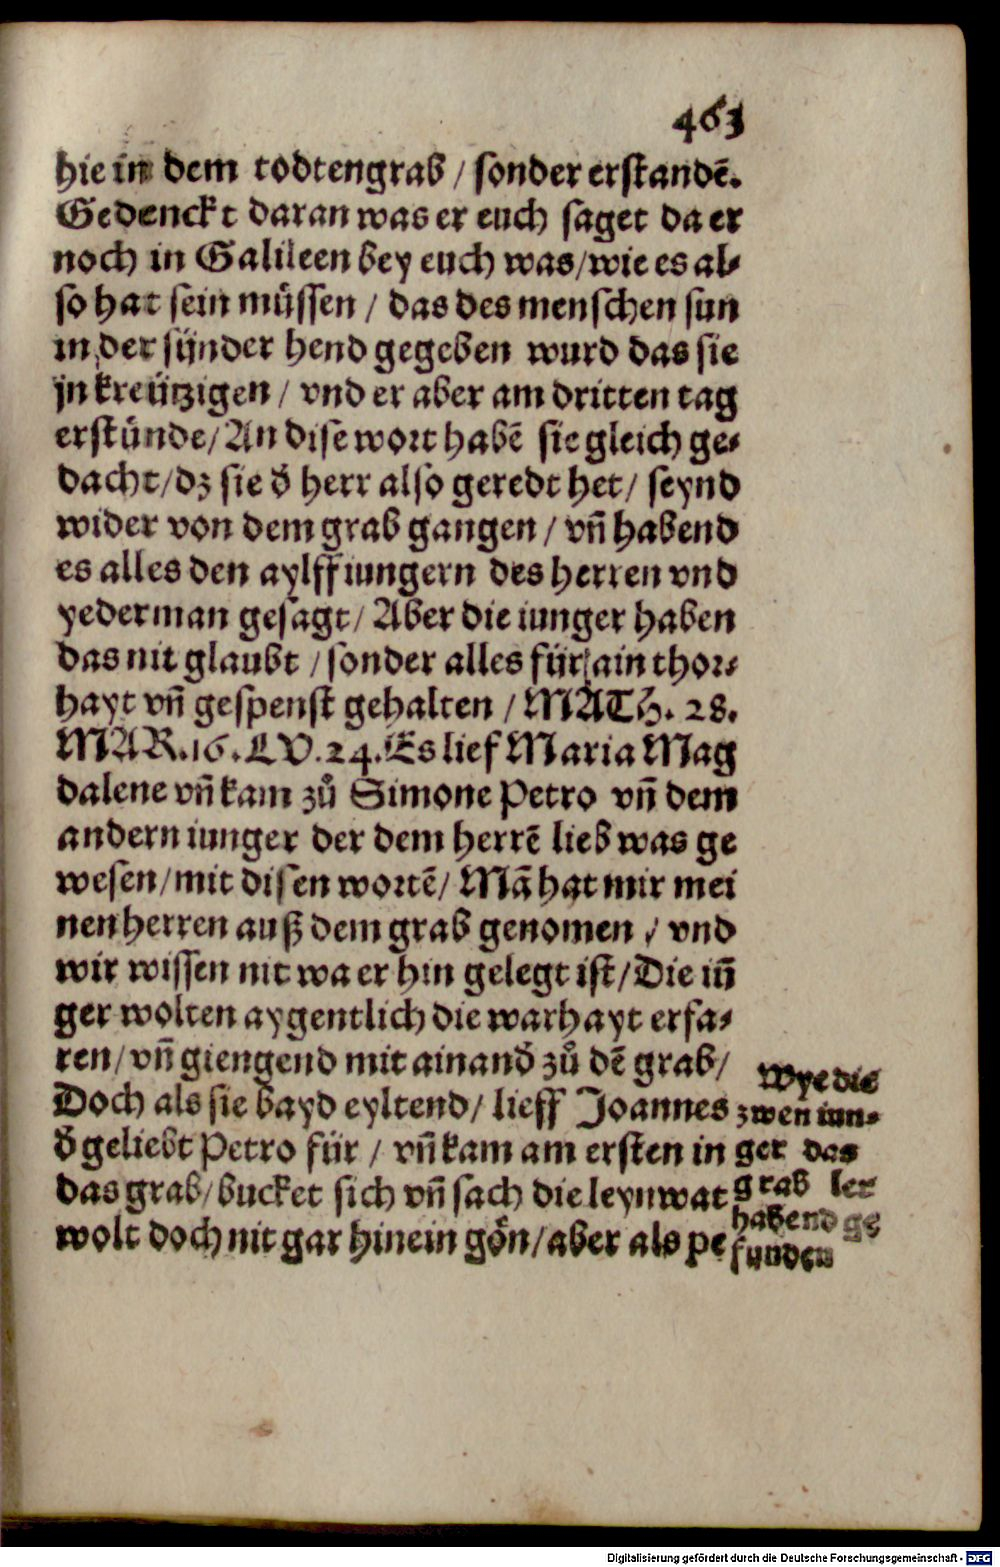 463
hie in dem todtengrab / sonder erstandē.
Gedenckt daran was er euch saget da er
noch in Galileen bey euch was/wie es al-
so hat sein müssen / das des menschen sun
in der sünder hend gegeben wurd das sie
jn kreützigen / vnd er aber am dritten tag
erstünde/An dise wort habē sie gleich ge-
dacht/dz sie d̕ herr also geredt het/ seynd
wider von dem grab gangen / vn̄ habend
es alles den aylff iungern des herren vnd
yederman gesagt/ Aber die iunger haben
das nit glaubt / sonder alles für ain thor-
hayt vn̄ gespenst gehalten / MATH. 28.
MAR.16.LV.24.Es lief Maria Mag
dalene vn̄ kam zů Simone Petro vn̄ dem
andern iunger der dem herrē lieb was ge
wesen/mit disen wortē/ Mā hat mir mei
nen herren auß dem grab genomen / vnd
wir wissen nit wa er hin gelegt ist/Die iun̄
ger wolten aygentlich die warhayt erfa-
ren/vn̄ giengend mit ainand̕ zů dē grab/
Doch als sie bayd eyltend/ lieff Joannes
d̕ geliebt Petro für / vn̄ kam am ersten in
das grab/bucket sich vn̄ sach die leynwat
wolt doch nit gar hinein gön/aber als pe
Wye die
zwen iun-
ger das
grab ler
habend ge
funden
Digitalisierung gefördert durch die Deutsche Forschungsgemeinschaft - DFG